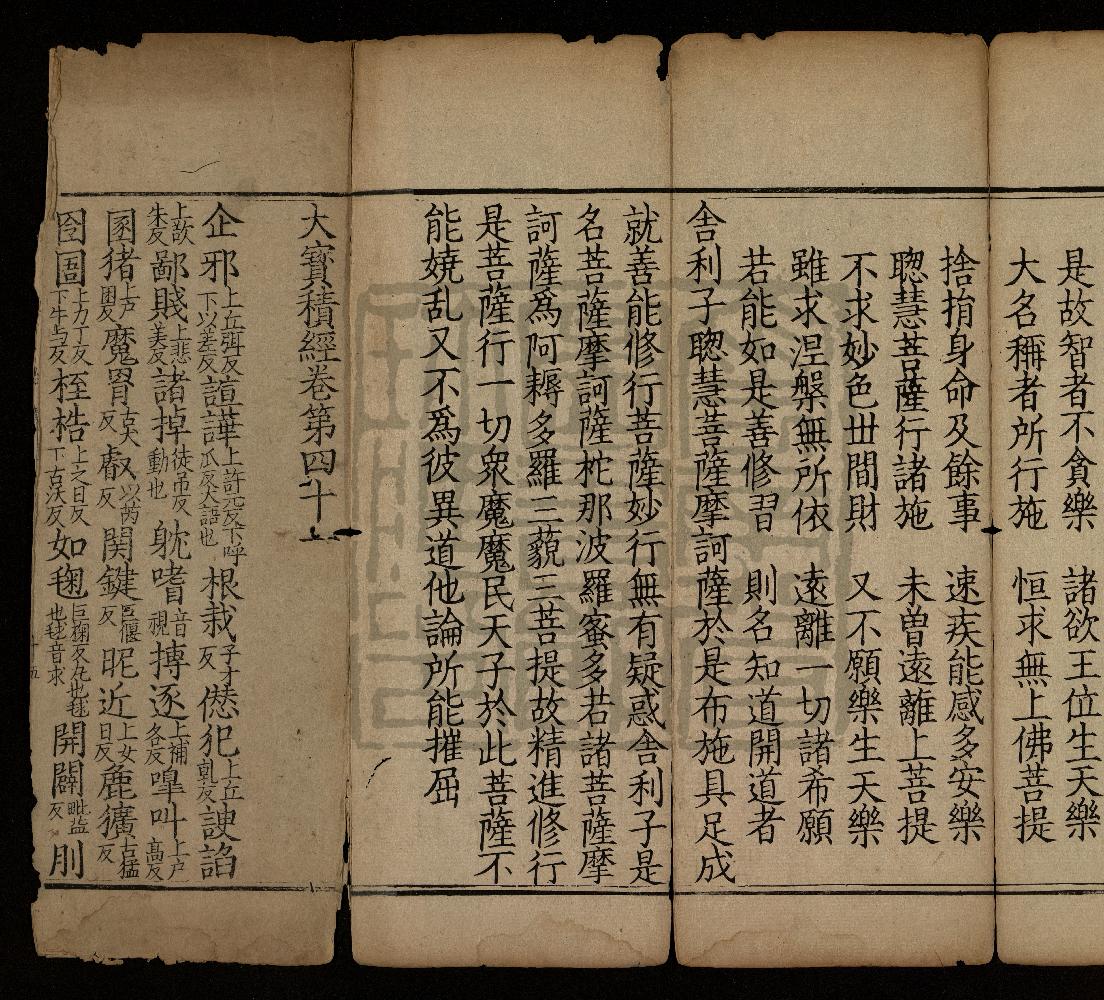 是故智者不貪樂　諸欲王位生天樂
大名稱者所行施　恒求無上佛菩提
捨捐身命及餘事　速疾能感多安樂
聦慧菩薩行諸施　未曽遠離上菩提
不求妙色丗間財　又不願樂生天樂
雖求涅槃無所依　遠離一切諸希願
若能如是善修習　則名知道開道者
舎利子聦慧菩薩摩訶薩於是布施具足成
就善能修行菩薩妙行無有疑惑舎利子是
名菩薩摩訶薩柁那波羅蜜多若諸菩薩摩
訶薩爲阿耨多羅三藐三菩提故精進修行
是菩薩行一切衆魔魔民天子於此菩薩不
能嬈乱又不爲彼異道他論所能摧屈
大寳積經卷第四十一
企邪上丘弭反下以差反諠譁上許元反下呼瓜反大語也根栽子才反僁犯上丘䖍反諛諂
上欤朱反鄙賎上悲美反諸掉徒吊反動也躭嗜音視搏逐上補各反嘷叫上户高反
圂猪上户困反魔罥古犬反叡以芮反関鍵巨偃反昵近上女日反麁獷古猛反
囹圄上力丁反下牛与反桎梏上之日反下古沃反如毱巨掬反丸也毬也毬音求開闢毗益反刖